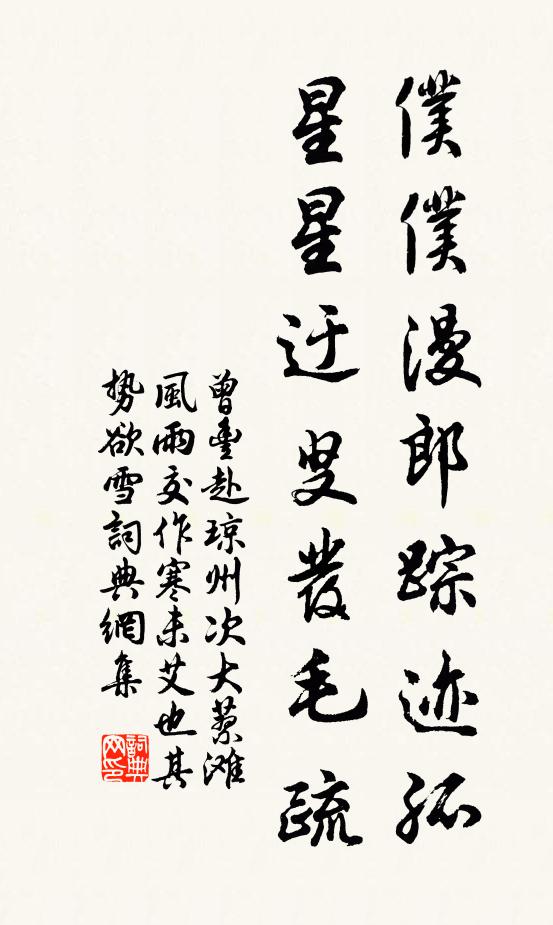 僕僕漫郎踪迹孤
星星迂叟发毛疏
曾豐赴琼州次大蔡滩
風雨交作寒未艾也其
势欲雪詞典網集
詞典网印